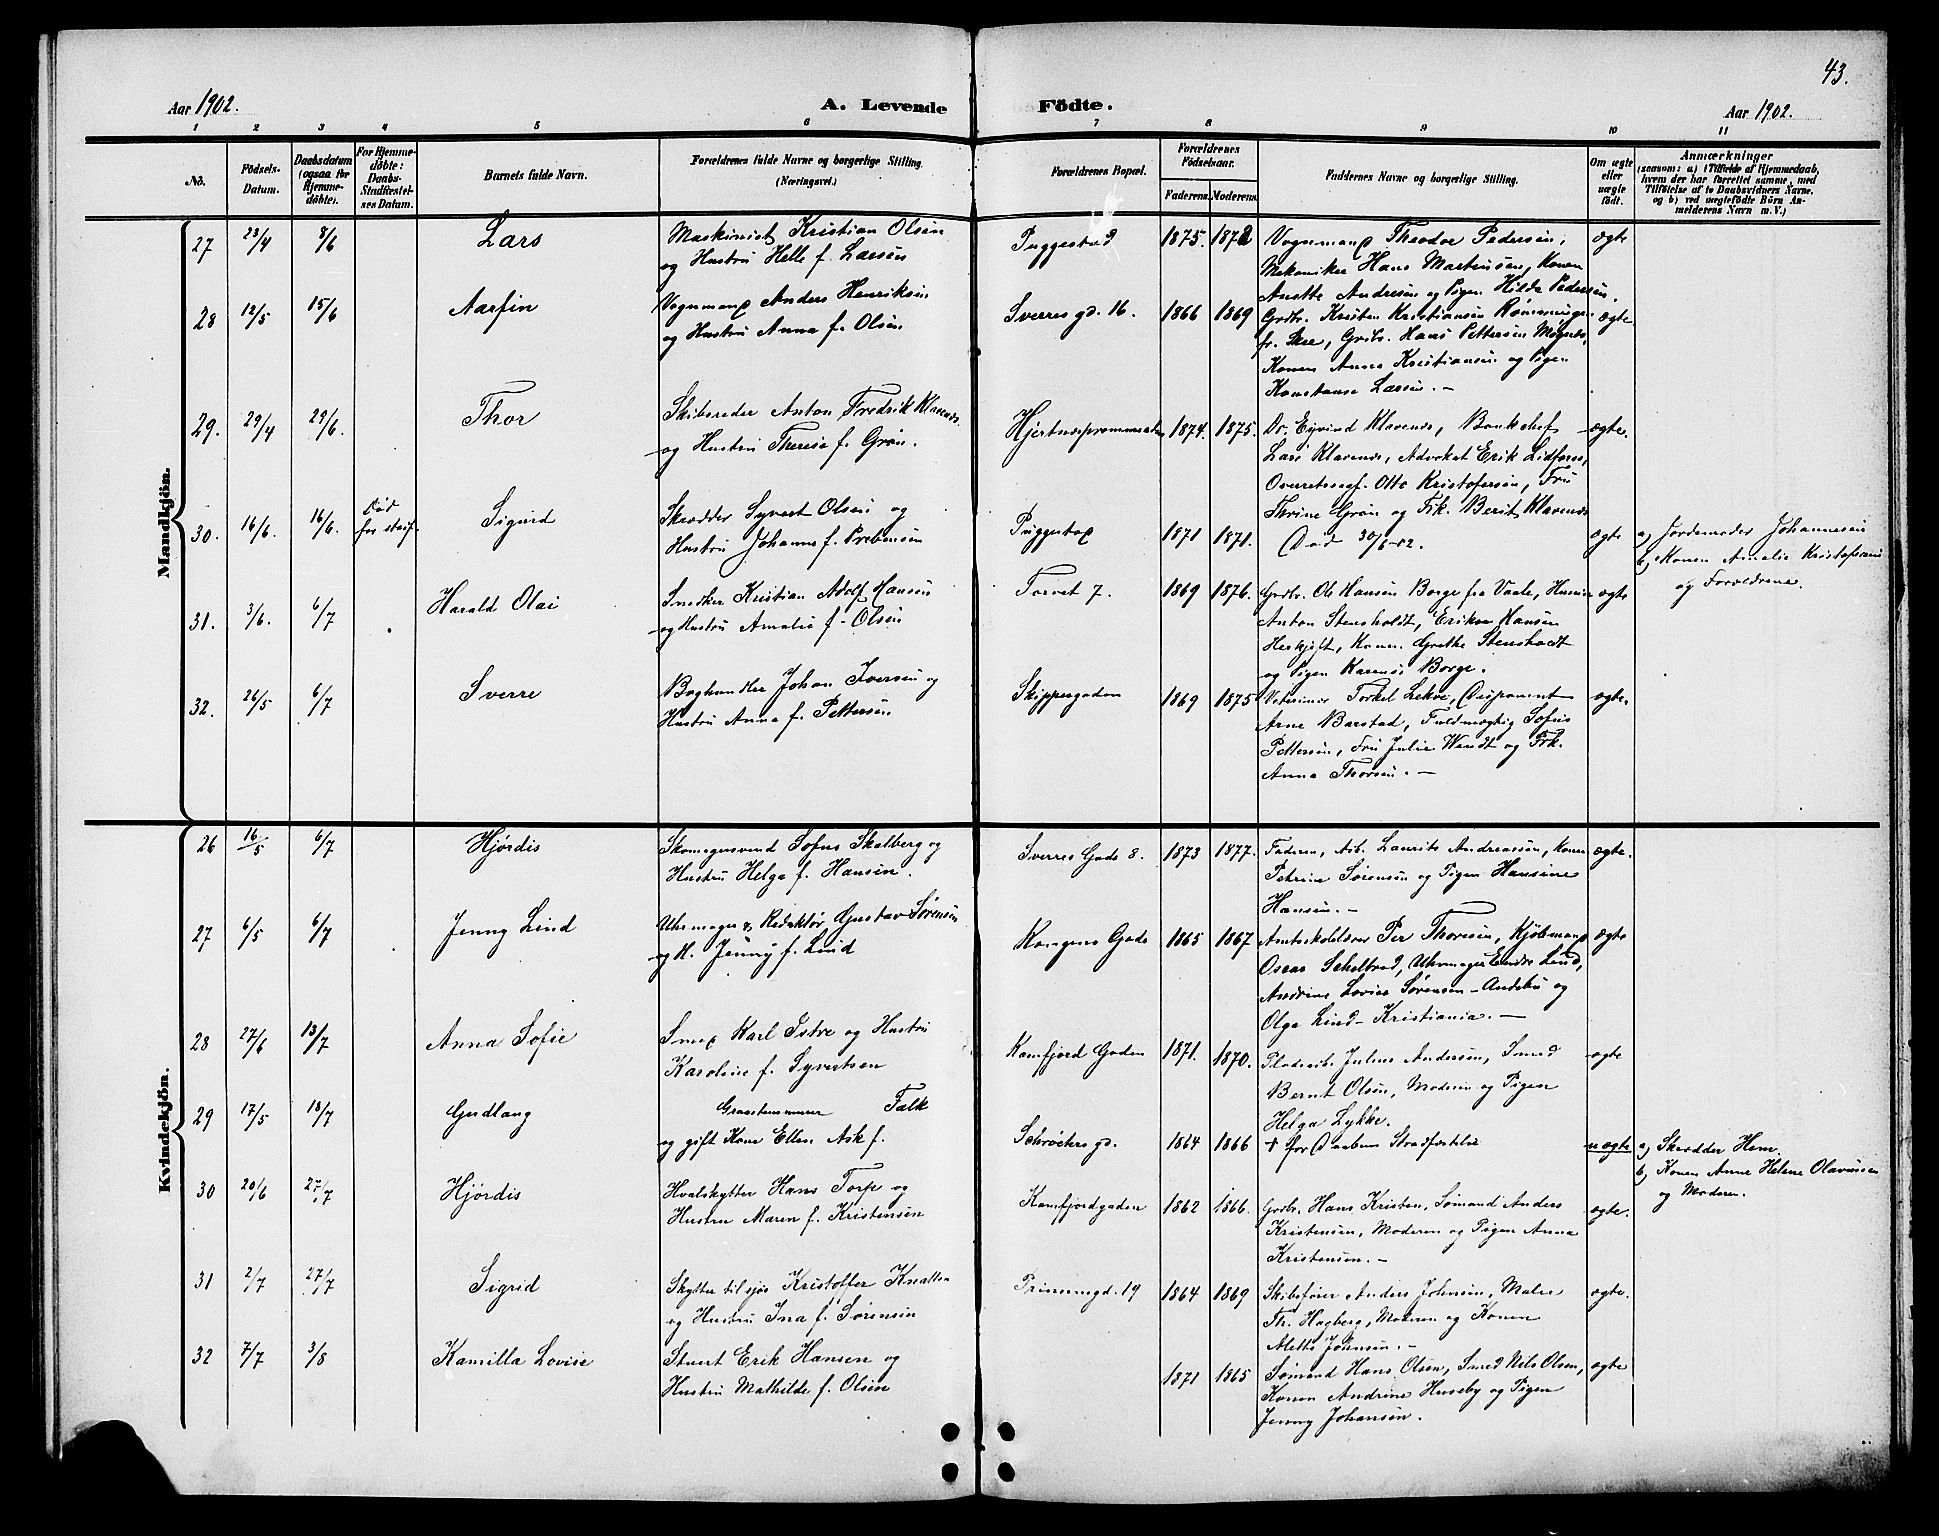 43.
Aar 1902. A. Levende Födte. Aar 1902.
1 2 3 4 5 6 7 8 9 10 11
No. Födsels-Datum. Daabsdatum (ogsaa for Hjemmedöbte). For Hjemmedöbte: Daabs-Stadfæstelses Datum. Barnets fulde Navn. Forældrenes fulde Navne og borgerlige Stilling. (Næringsvei.) Forældrenes Bopæl. Forældrenes Födselsaar. Faderens. Moderens. Faddernes Navne og borgerlige Stilling. Om ægte eller uægte födt. Anmærkninger (saasom: a) i Tilfælde af Hjemmedaab, hvem der har forrettet samme, med Tilföielse af to Daabsvidners Navne, og b) ved uægtefödte Börn Anmelderens Navn m. V.)
Mandkjön.
27 23/4 8/6 Lars Maskinist Kristian Olsen Puggestad 1875. 1872 Vognmand Theodor Pedersen, ægte
og Hustru Helle f. Larsen Mekaniker Hans Martinsen, Konen
Anette Andresen og Pigen Hilda Pedersen.
28 12/5 15/6 Aarfin Vognmand Anders Henriksen Sverres gd. 16. 1866 1869 Grdbr. Kristen Kristiansen ægte
og Hustru Anna f. Olsen fr. Skee, Grdbr. Hans Pettersen
Konen Anna Kristiansen og Pigen
Konstanse Larsen. —
29. 29/4 29/6. Thor Skibsreder Anton Fredrik Klaveness Hjertnespromenaden 1874. 1875. Dr. Eyvind Klaveness, Bankchef ægte.
og Hustru Therese f. Grøn. Lars Klaveness, Advokat Erik Lidforss,
Overretssagf. Otto Kristofersen, Fru
Thrine Grøn og Frk. Berit Klaveness
30. 16/6. 16/6. Död for stadf. Sigurd Skrædder Syvert Olsen og Puggestad 1871 1871. Död 30/6-02. ægte a) Jordemoder Johannesen
Hustru Johanne f. Prebensen b) Konen Amalie Kristofersen
og Forældrene.
31. 3/6. 6/7 Harald Olai Snedker Kristian Adolf Hansen Torvet 7. 1869 1876. Grdbr. Ole Hansen Borge fra Vaale, ægte
og Hustru Amalie f. Olsen Anton Stensholdt, Erikson Hansen
Konen Grethe Stensholdt
og Pigen Karensi Borge.
32. 26/5 6/7 Sverre Boghandler Johan Iversen og Skippergaden 1869 1875 Veterinær Torkel Lekve, Disponent ægte.
Hustru Anna f. Pettersen Arne Barstad, Fuldmægtig Sofus
Pettersen, Fru Julie Wendt og Frk.
Anna Thorsen. —
Kvindekjön.
26 16/5 6/7 Hjørdis Skomagersvend Sofus Skalberg og Sverres Gade 8. 1873 1877. Faderen, Arb. Laurits Andreassen, Konen ægte.
Hustru Helga f. Hansen. Petrine Sørensen og Pigen Hansine
Hansen. —
27 6/5 6/7 Jenny Lind Uhrmager & Redaktør Gustav Sørensen Kongens Gade 1865 1867 Amtsskolelærer Per Thoresen, Kjøbmand ægte
og H. Jenny f. Lind Oscar Schelbred, Uhrmager Endre Lind,
Andrine Lovise Sørensen - Andebu og
Olga Lind - Kristiania. —
28 27/6 13/7 Anna Sofie Smed Karl Istre og Hustru Kamfjord Gaden 1871. 1870. Pladearb. Julius Andersen, Smed ægte
Karoline f. Syvertsen Bernt Olsen, Moderen og Pigen
Helga Lykke.
29 17/5 18/7 Gudlaug Graastenmurer Falk Schrøders gd. 1864 1866 + før Daabens Stadfæstelse uægte a) Skrædder Hem.
og gift Kone Ellen Ask f. b) Konen Anne Helene Olavesen
og Moderen.
30 20/6 27/7 Hjørdis Hvalskytter Hans Torp og Kamfjordgaden 1862 1866. Grdbr. Hans Kristen, Sømand Anders ægte.
Hustru Maren f. Kristensen Kristensen, Moderen og Pigen Anna
Kristensen. —
31 2/7 27/7 Sigrid Skytter tilsjøs Kristoffer Knatten Prinsensgd. 19 1864 1869 Skibsfører Anders Johnsen, Maler ægte.
og Hustru Ina f. Sørensen Th. Hagberg, Moderen og Konen
Alette Johnsen. —
32 7/7 3/8 Kamilla Lovise Stuert Erik Hansen og 1871 1865 Sømand Hans Olsen, Smed Nils Olsen, ægte
Hustru Mathilde f. Olsen Konen Andrine Huseby og Pigen
Jenny Johansen.